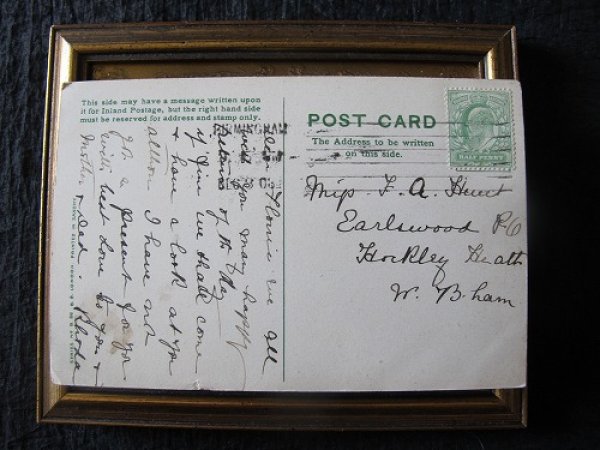 This side may have a message written upon
it for Inland Postage, but the right hand side
must be reserved for address and stamp only.
POST CARD
The Address to be written
on this side.
HALF PENNY
BIRMINGHAM
Miss F. A. Hunt
Earlswood P.O
Hockley Heath
W. B.ham
Dear Florrie we all
wish you many happy
returns of the Day
if fine we shall come
& have a look at you
altho I have not
got a present for you
with best love to you &
Mother & Dad. Rhoda